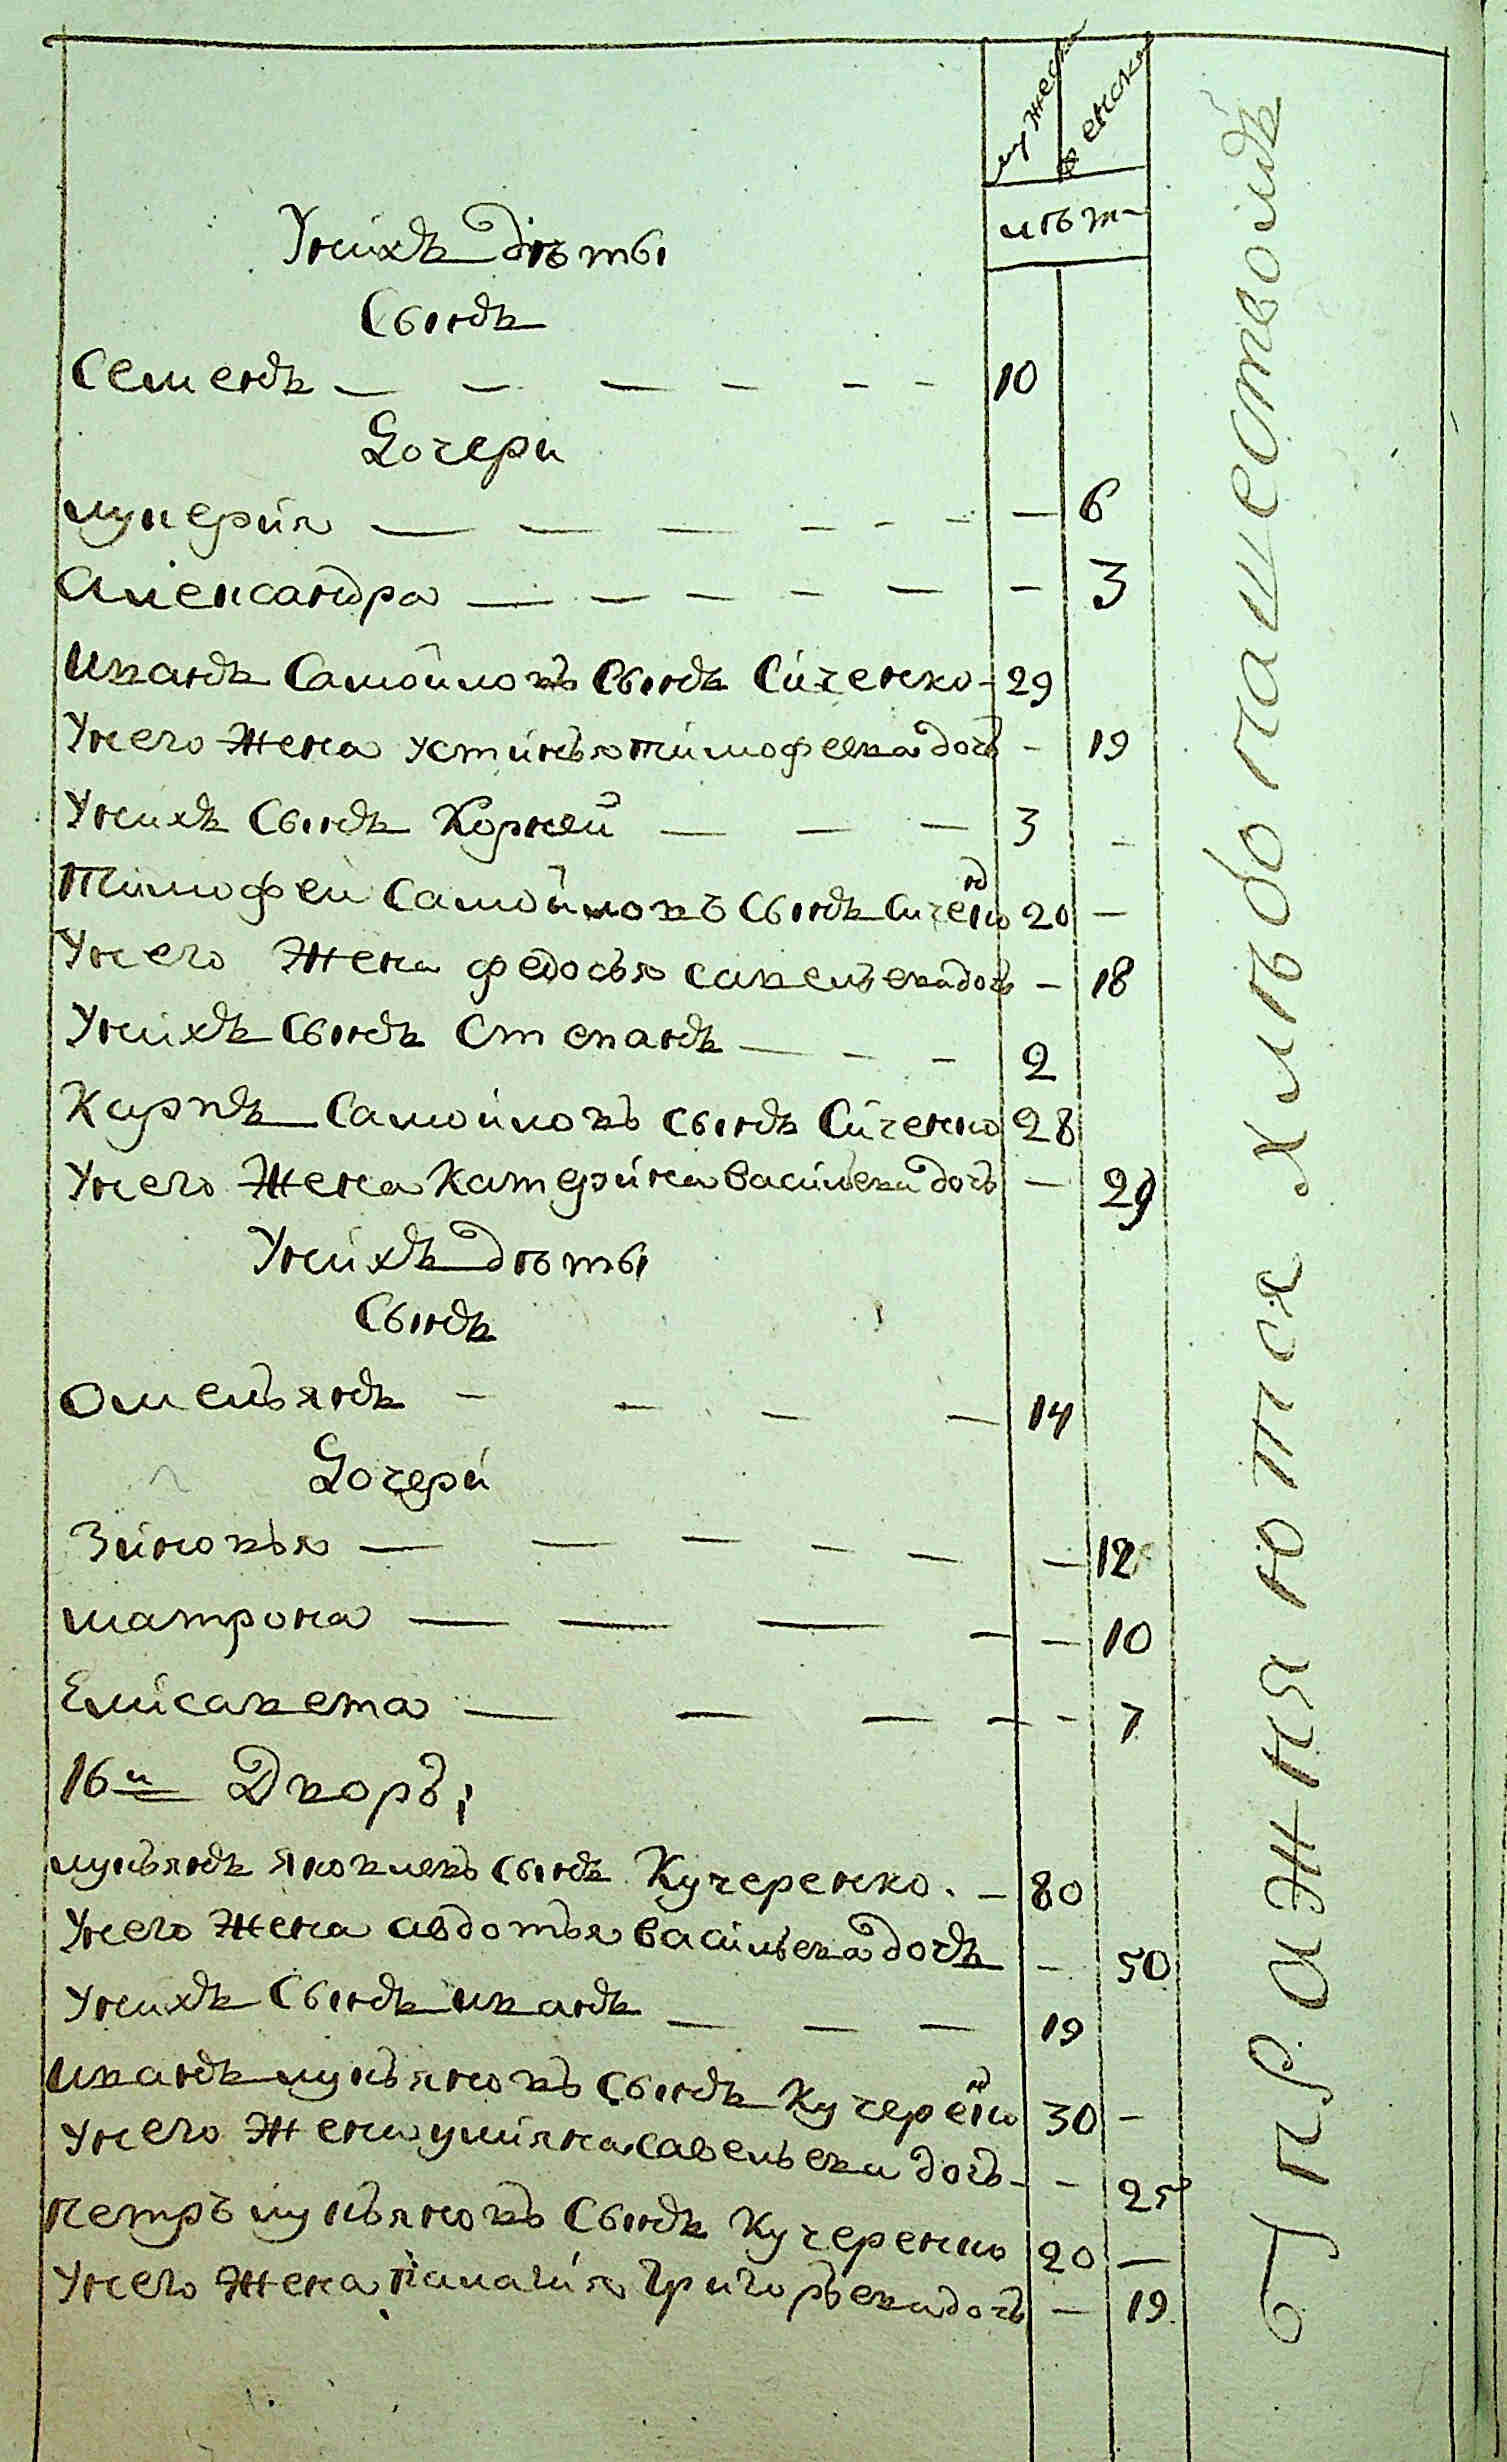 мужеск женска
лѣт
Унихъ дѣты
Сынъ
Семенъ — — — — — — 10
Дочери
лукерия — — — — — — — 6
Александра — — — — — — 3
Иванъ Самойловъ Сынъ Сиченко - 29
Унего Жена устинья тимофеева дочь - 19
Унихъ Сынъ Корней — — — 3 -
Тимофей Самойловъ Сынъ Сиченко 20 —
Унего Жена федосья савельева дочь — 18
Унихъ Сынъ Степанъ — — — 2
Карпъ Самойловъ сынъ Сиченко 28
Унего Жена Катерина Васильева дочь — 29
Унихъ дѣты
Сынъ
Омельянъ - — — — 14
Дочери
Зиновья — — — — — — 12
матрона — — — — — 10
Елисавета — — — — - 7
16й Дворъ,
лукьянъ Яковлевъ сынъ Кучеренко. — 80
Унего Жена авдотья васильева дочь - 50
Унихъ Сынъ иванъ — — — 19
Иванъ лукьяновъ сынъ Кучеренко 30 —
Унего Жена улияна савельева дочь - - 25
Петръ лукьяновъ Сынъ Кучеренко 20 —
Унего Жена Палагия Григорьева дочь — 19
упражняются хлѣбопашествомъ